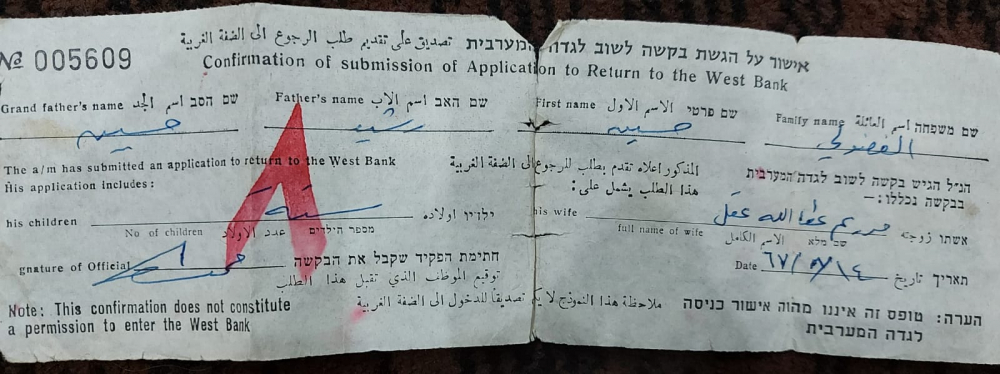 № 005609
אישור על הגשת בקשה לשוב לגדה המערבית تصديق على تقديم طلب الرجوع الى الضفة الغربية
Confirmation of submission of Application to Return to the West Bank
שם משפחה اسم العائلة Family name
שם פרטי الاسم الاول First name حبيب
שם האב اسم الاب Father's name رشيد
שם הסב اسم الجد Grand father's name حبيب
הנ"ל הגיש בקשה לשוב לגדה המערבית
בבקשה נכללו:—
المذكور اعلاه تقدم بطلب للرجوع الى الضفة الغربية
هذا الطلب يشمل على:
The a/m has submitted an application to return to the West Bank
His application includes:
אשתו زوجته عطا الله his wife
שם מלא الاسم الكامل full name of wife
ילדיו اولاده ستة his children
מספר הילדים عدد الاولاد No of children
תאריך تاريخ Date
חתימת הפקיד שקבל את הבקשה gnature of Official
توقيع الموظف الذي تقبل هذا الطلب
הערה: טופס זה איננו מהוה אישור כניסה
לגדה המערבית
ملاحظة هذا النموذج لا يعد تصديقاً للدخول الى الضفة الغربية
Note: This confirmation does not constitute
a permission to enter the West Bank